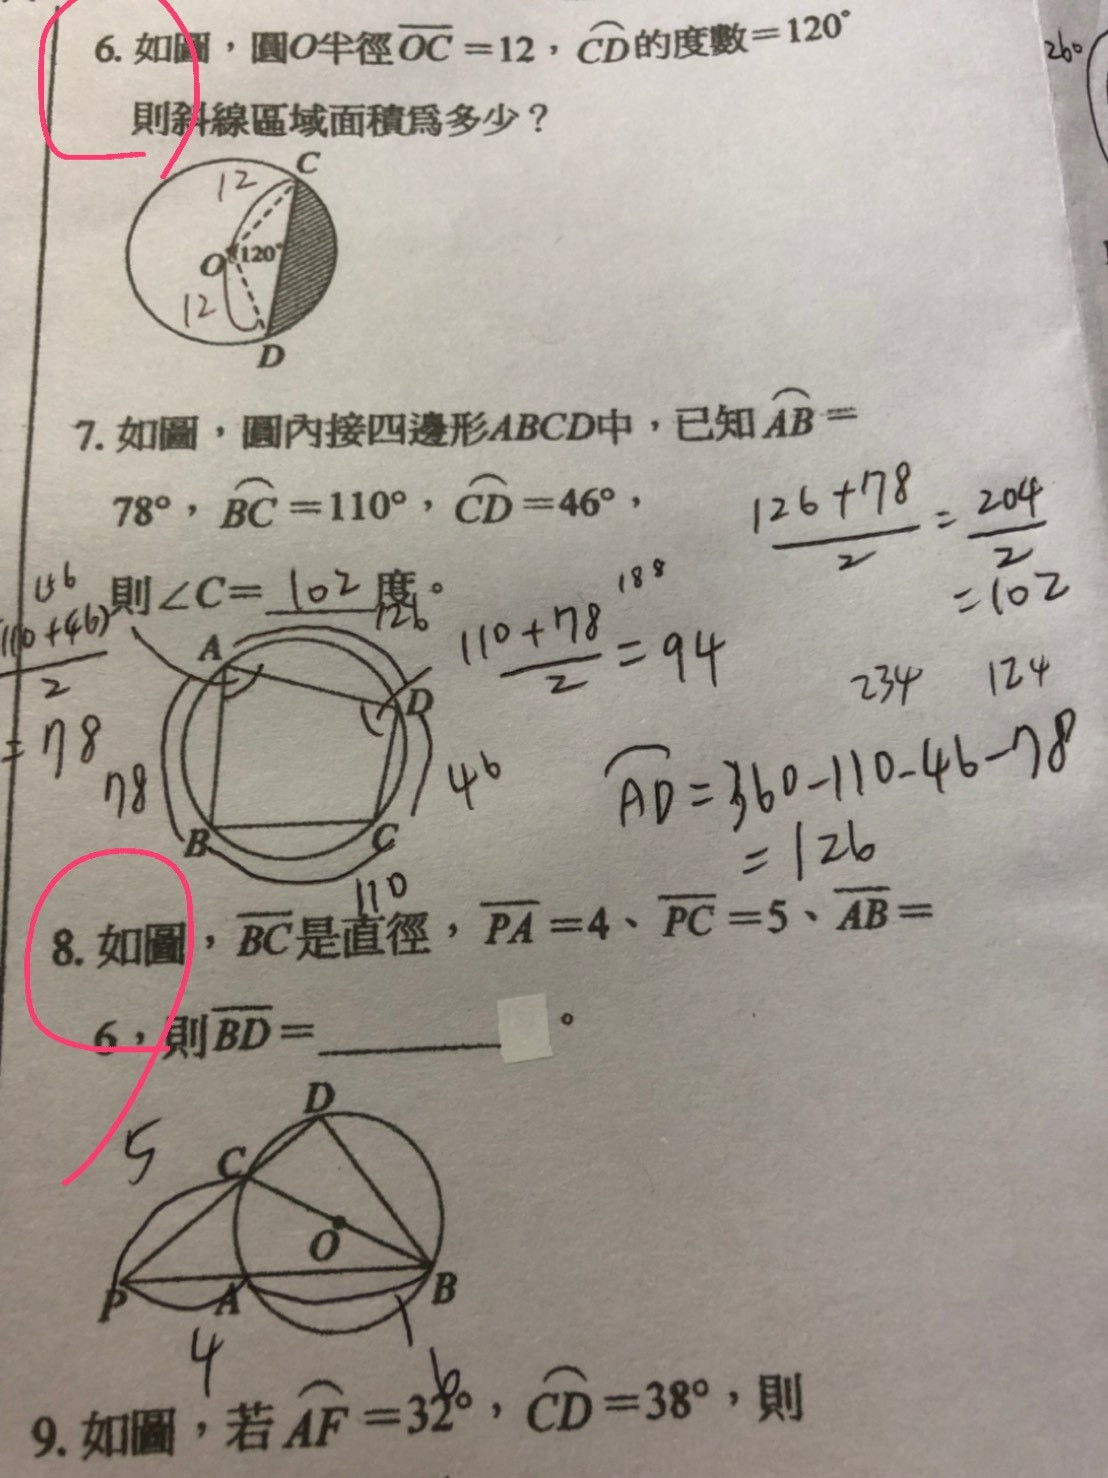 6. 如圖，圓O半徑OC=12，CD的度數=120°
則斜線區域面積為多少？
260
C
12
O 120°
12
D
7. 如圖，圓內接四邊形ABCD中，已知AB=
78°，BC=110°，CD=46°，
則∠C=102度。
156
(110+46)/2
=78
126
188
(110+78)/2=94
(126+78)/2=204/2
=102
234 124
AD=360-110-46-78
=126
A
D
78
46
B
C
110
8. 如圖，BC是直徑，PA=4、PC=5、AB=
6，則BD=______。
D
5
C
O
P
A
B
4
6
9. 如圖，若AF=32°，CD=38°，則